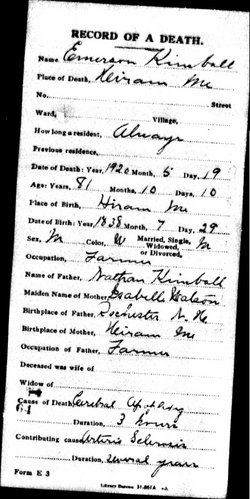 RECORD OF A DEATH.
Name, Emerson Kimball
Place of Death, Hiram Me
No. Street
Ward, Village,
How long a resident, Always
Previous residence,
Date of Death: Year, 1920 Month, 5 Day, 19
Age: Years, 81 Months, 10 Days, 10
Place of Birth, Hiram Me
Date of Birth: Year, 1838 Month, 7 Day, 29
Sex, M Color, W Married, Single, Widowed, or Divorced, M
Occupation, Farmer
Name of Father, Nathan Kimball
Maiden Name of Mother, Isabelle Watson
Birthplace of Father, Rochester N. H.
Birthplace of Mother, Hiram Me
Occupation of Father, Farmer
Deceased was wife of
Widow of
Cause of Death, Cerebral
Duration, 3 hours
Contributing cause, Arterio Sclerosis
Duration, several years
Form E 3
Library Bureau